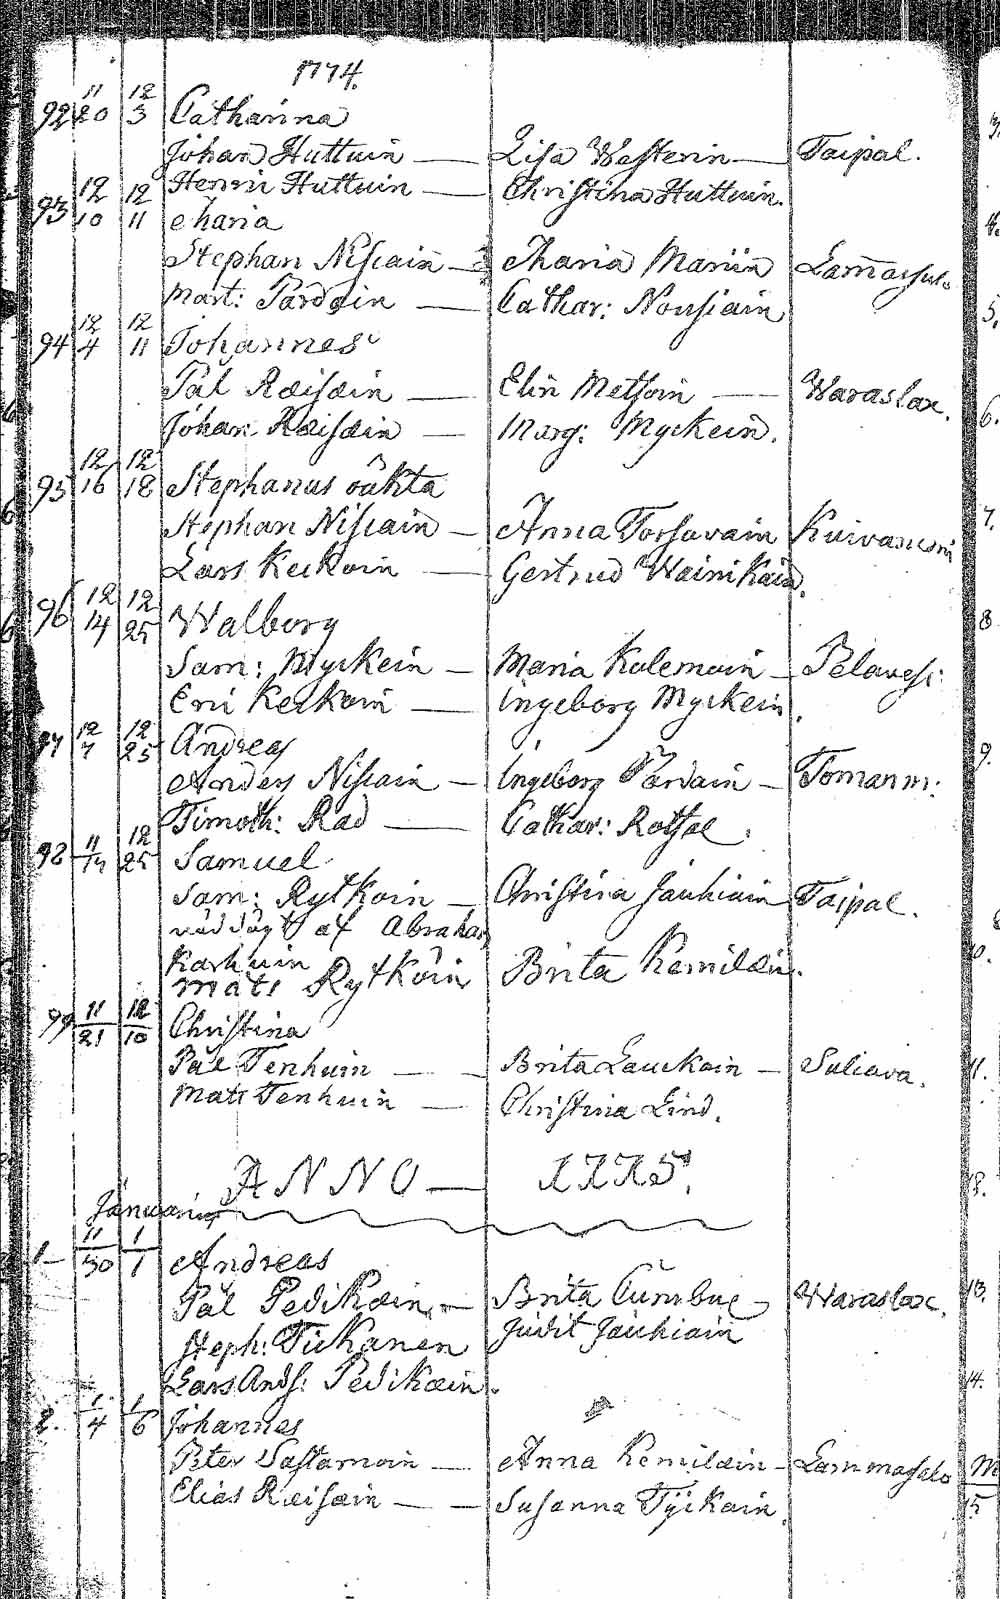 1774.
92 11/20 12/3 Catharina
Johan Huttuin — Lisa Westerin — Taipal.
Henric Huttuin — Christina Huttuin.
93 12/10 12/11 Maria
Stephan Nissain — Maria Mariin Lammassalo
Mart: Pardain — Cathar: Nousiain
94 12/4 12/11 Johannes
Pål Ræisæin — Elin Metsoin — Waraslax.
Johan Ræisæin — Marg: Myckein.
95 12/16 12/18 Stephanus oäkta
Stephan Nissain — Anna Torsavain Kuivaniemi
Lars Keckoin — Gertrud Wainikain.
96 12/14 12/25 Walborg
Sam: Myckein — Maria Kolemain — Pelavesi
Eric Keckoin — Ingeborg Myckein.
97 12/7 12/25 Andreas
Anders Nissain — Ingeborg Pardain — Tomanm:
Timoth: Rad — Cathar: Rotsal.
98 11/17 12/25 Samuel
Sam: Rytkoin — Christina Jauhiain Taipal.
af Abraham
Karhuin
Mats Rytköin Brita Kemiläin.
99 11/21 12/10 Christina
Pål Tenhuin — — Brita Lauckain — Suliava.
Mats Tenhuin — Christina Lind.
ANNO — 1775.
Januarius
1 — 11/30 1/1 Andreas
Pål Pedikæin — Brita — Waraslax.
Steph: Tickanen Judit Jauhiain
Lars Ands: Pedikæin.
2. 1/4 1/6 Johannes
Peter Sastamoin — Anna Kemiläin — Lammassalo
Elias Ræisæin — — Susanna Tyickain.